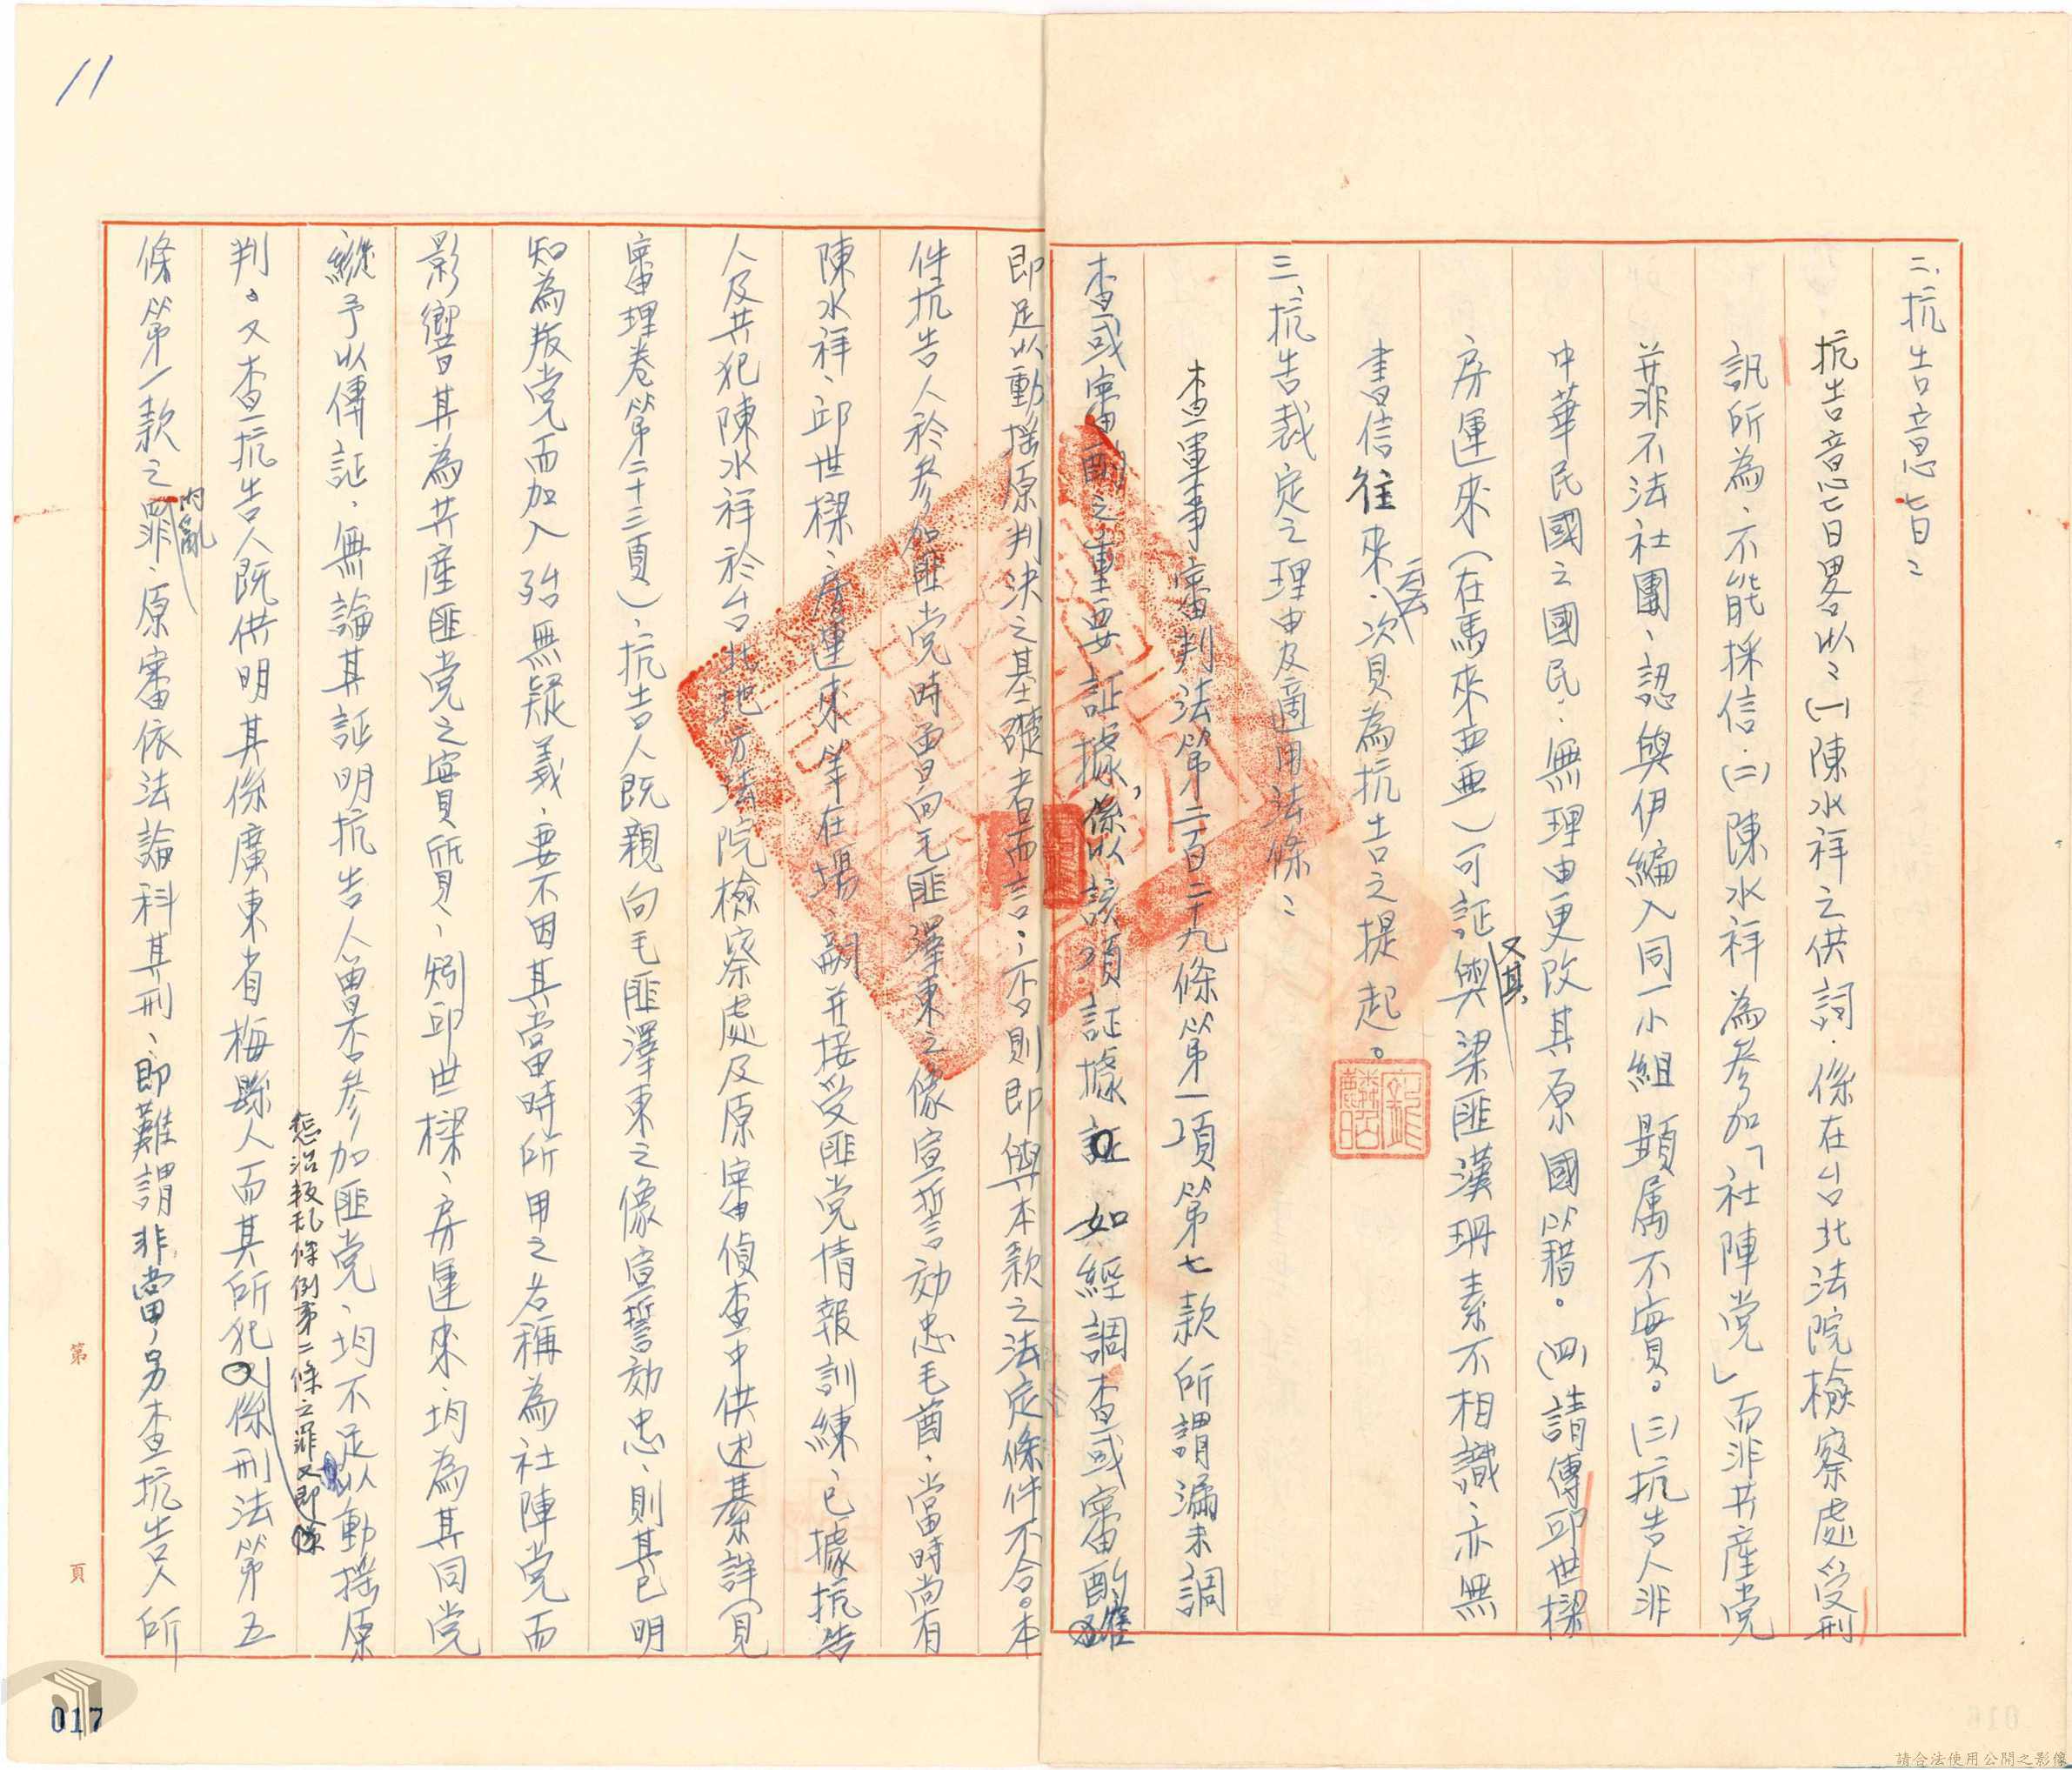 二、抗告意旨：
抗告意旨畧以：(一)陳水祥之供詞，係在台北法院檢察處受刑
訊所為，不能採信。(二)陳水祥為參加「社陣党」而非共產党
并非不法社團，認與伊編入同一小組顯属不實。(三)抗告人非
中華民國之國民，無理由更改其原國籍。(四)請傳邱世樑
房運來（在馬來西亜）可証
又其
與梁匪漢珊素不相識，亦無
書信往來，
云云
次頁為抗告之提起。
三、抗告裁定之理由及適用法條：
查軍事審判法第二百二十九條第一項第七款所謂漏未調
查或審酌之重要証據，係以該項証據
如經調查或審酌
確
即足以動搖原判決之基礎者而言，否則即與本款之法定條件不合。本
件抗告人於參加匪党時曾向毛匪澤東之像宣誓効忠毛酋，當時尚有
陳水祥、邱世樑、房運來等在場，嗣并接受匪党情報訓練，已據抗告
人及共犯陳水祥於台北地方法院檢察處及原審偵查中供述綦詳（見
審理卷第二十三頁），抗告人既親向毛匪澤東之像宣誓効忠，則其已明
知為叛党而加入殆無疑義，要不因其當時所用之名稱為社陣党而
影響其為共產匪党之實質，矧邱世樑、房運來，均為其同党
縱予以傳証，無論其証明抗告人曾否參加匪党，均不足以動搖原
判。又查抗告人既供明其係廣東省梅縣人而其所犯
懲治叛乱條例第二條之罪又即係
係刑法第五
條第一款之
內亂
罪，原審依法論科其刑，即難謂非當，另查抗告人所
第
頁
11
017
請合法使用公開之影像